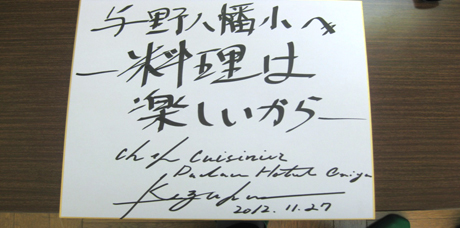 与野八幡小へ
―料理は
楽しいから―
Chef Cuisinier
Hotel
2012.11.27